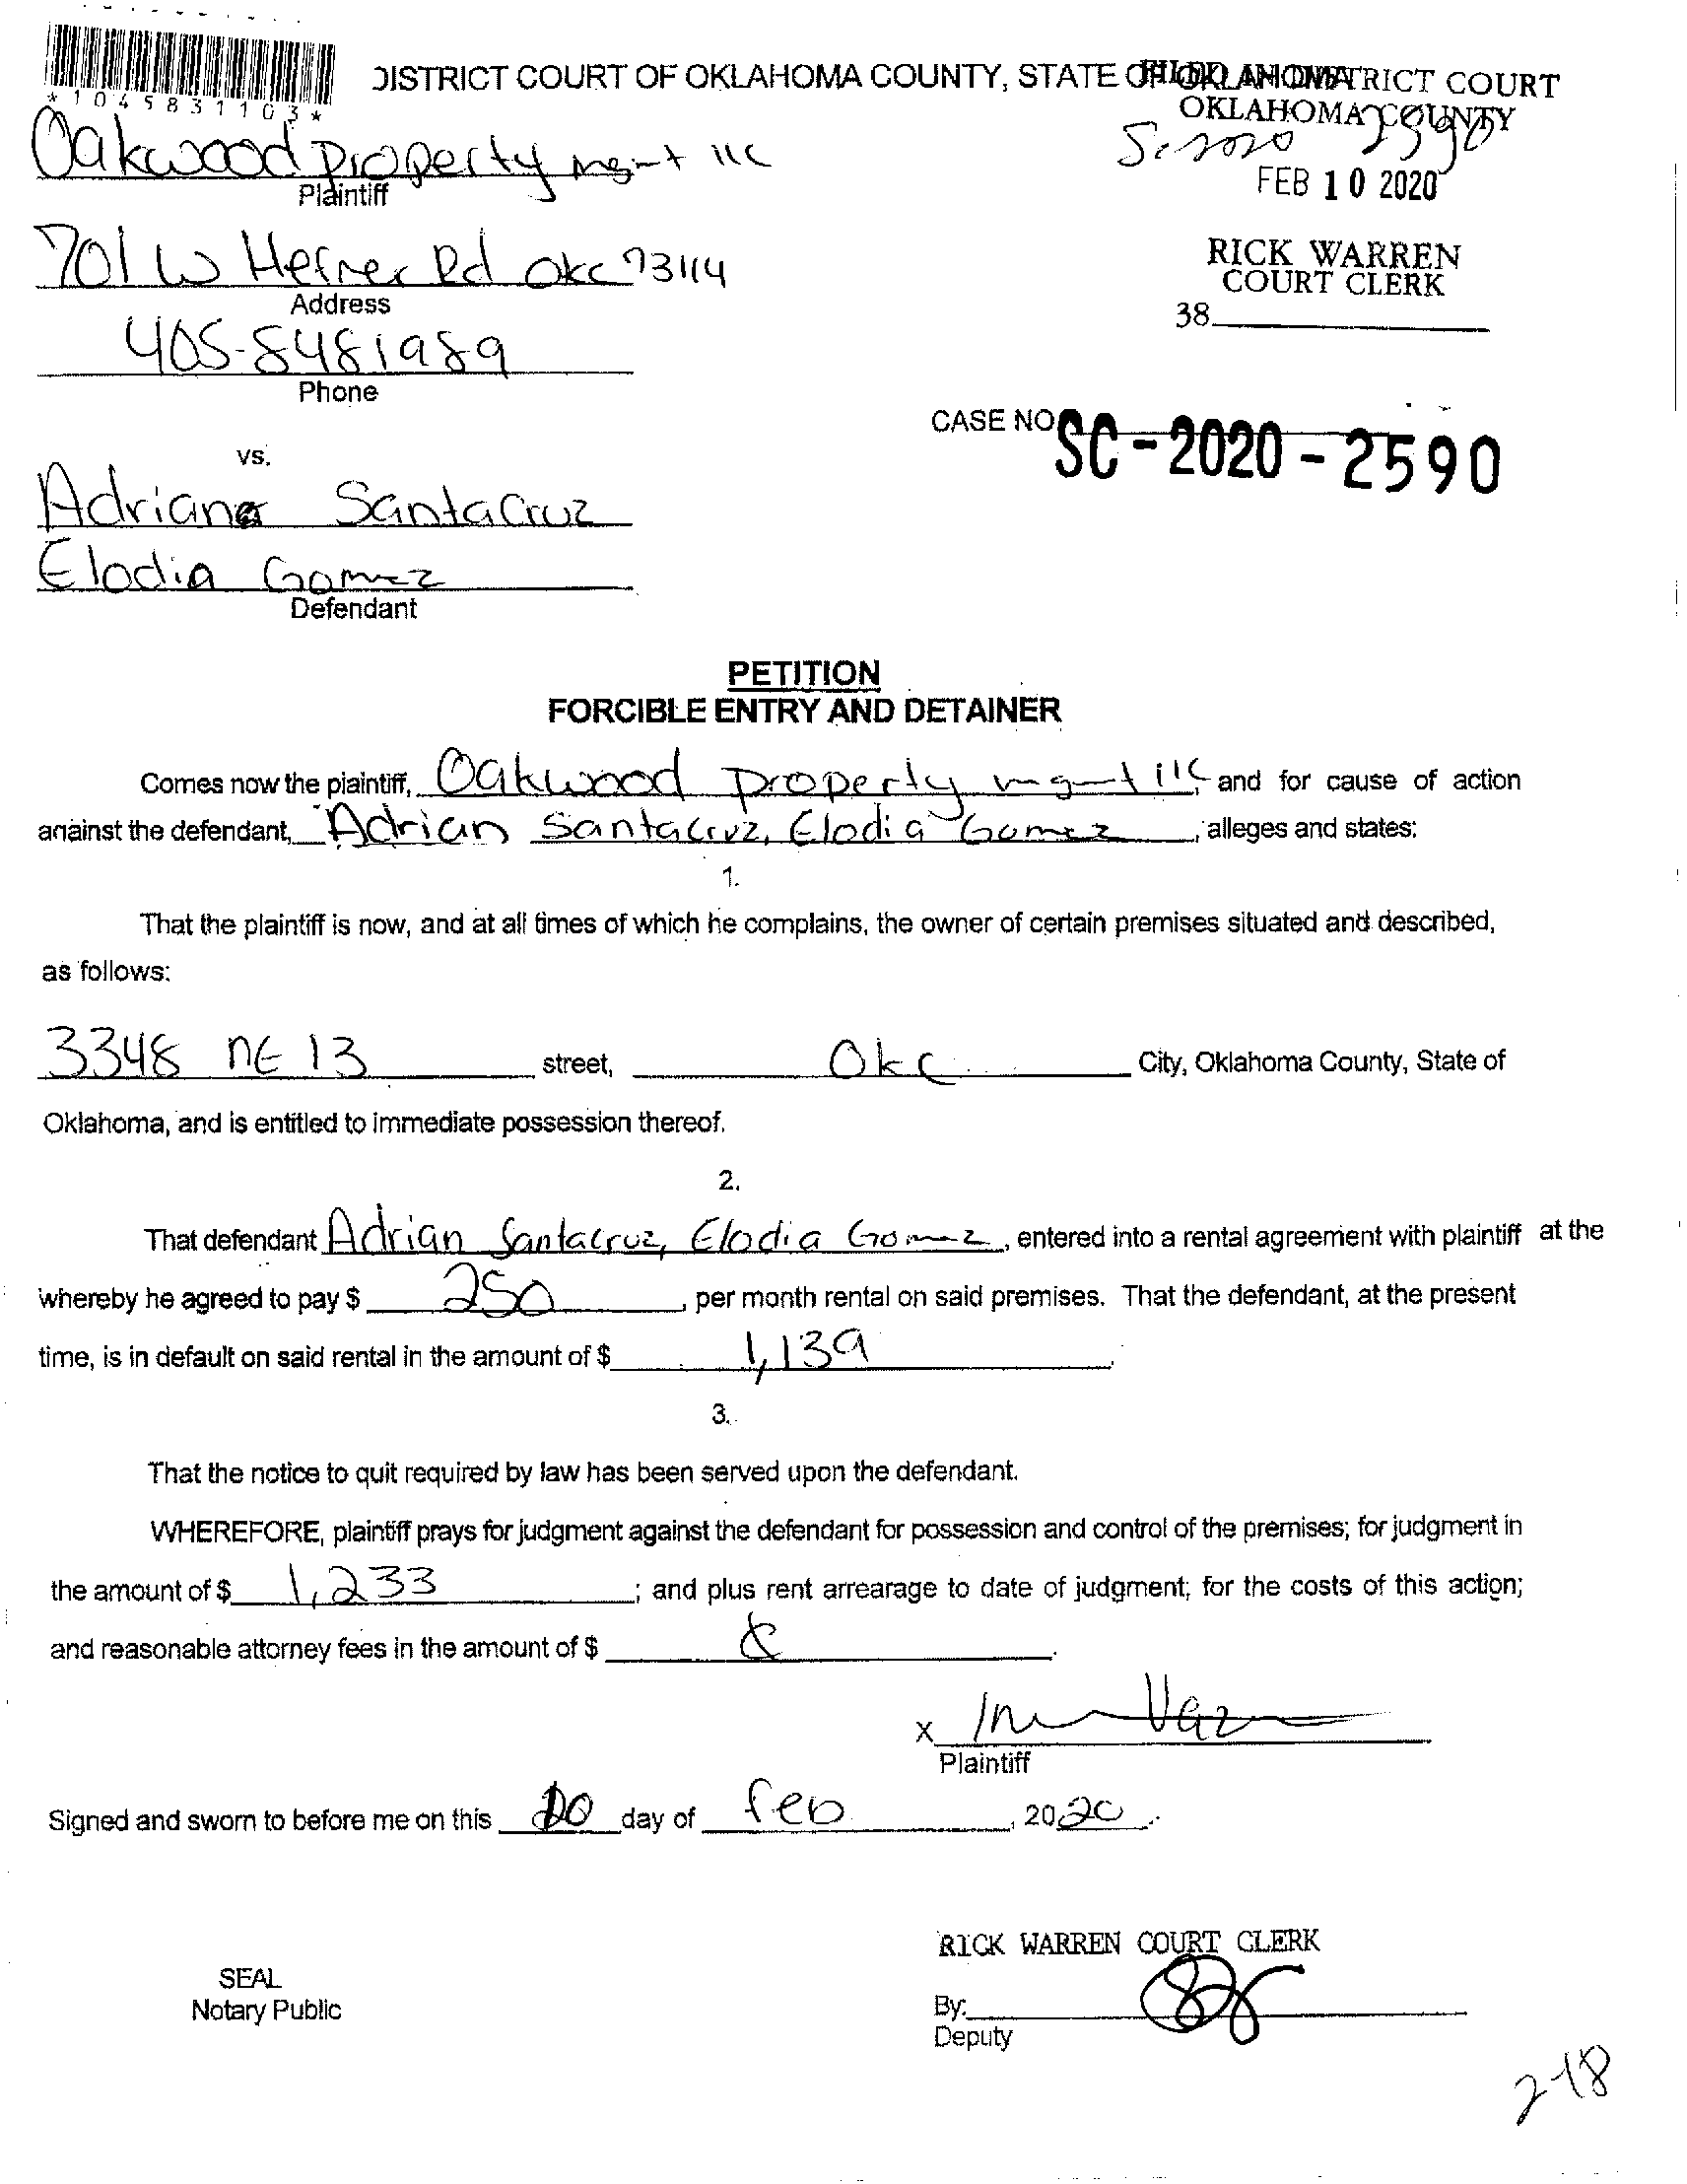 *1045831103*
DISTRICT COURT OF OKLAHOMA COUNTY, STATE OF OKLAHOMA
FILED IN DISTRICT COURT
OKLAHOMA COUNTY
2590
FEB 10 2020
RICK WARREN
COURT CLERK
38
Oakwood property mgmt llc
Plaintiff
701 W Hefner Rd okc 73114
Address
405-8481989
Phone
CASE NO SC-2020-2590
vs.
Adrian Santacruz
Elodia Gomez
Defendant
PETITION
FORCIBLE ENTRY AND DETAINER
Comes now the plaintiff, Oakwood property mgmt llc, and for cause of action
against the defendant, Adrian Santacruz, Elodia Gomez, alleges and states:
1.
That the plaintiff is now, and at all times of which he complains, the owner of certain premises situated and described,
as follows:
3348 NE 13 street, Okc City, Oklahoma County, State of
Oklahoma, and is entitled to immediate possession thereof.
2.
That defendant Adrian Santacruz, Elodia Gomez, entered into a rental agreement with plaintiff at the
whereby he agreed to pay $ 250, per month rental on said premises. That the defendant, at the present
time, is in default on said rental in the amount of $ 1,139.
3.
That the notice to quit required by law has been served upon the defendant.
WHEREFORE, plaintiff prays for judgment against the defendant for possession and control of the premises; for judgment in
the amount of $ 1,233; and plus rent arrearage to date of judgment; for the costs of this action;
and reasonable attorney fees in the amount of $
X
Plaintiff
Signed and sworn to before me on this 10 day of feb, 2020.
RICK WARREN COURT CLERK
SEAL
Notary Public
By:
Deputy
2-18